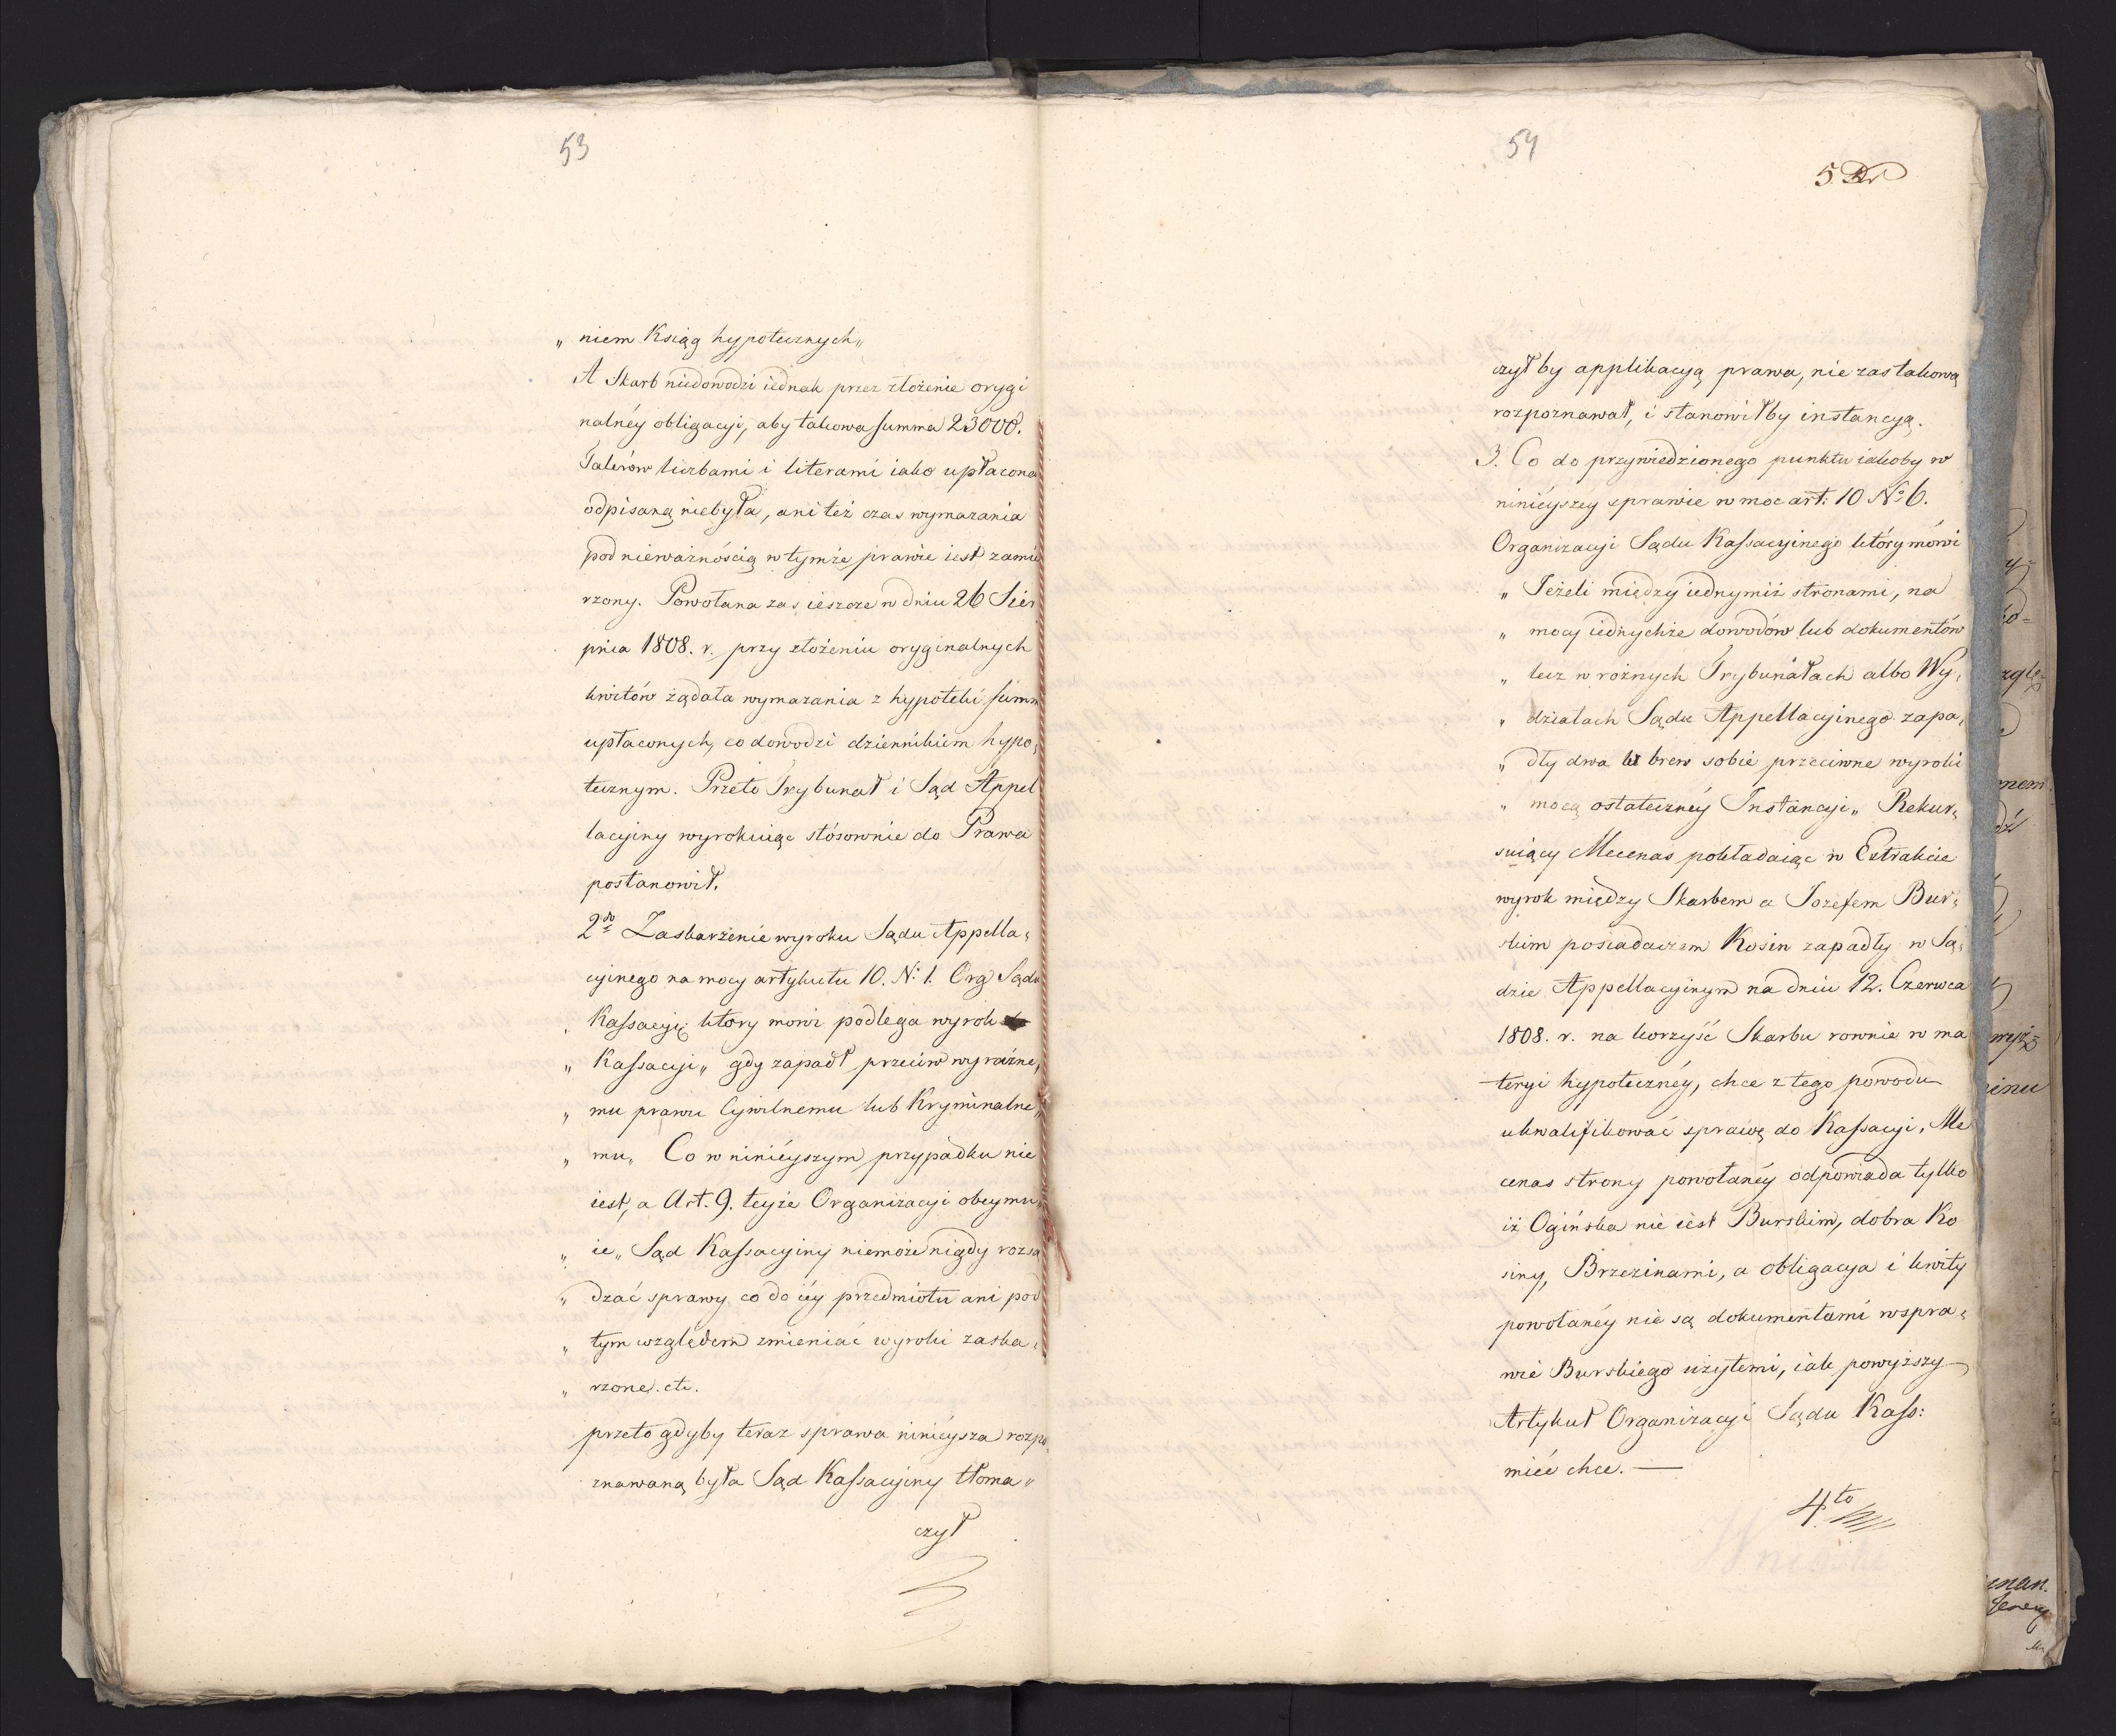 53
„ niem Ksiąg hypotecznych„
A Skarb niedowodzi iednak przez złożenie orygi
nalnéy obligacyi, aby takowa summa 23000.
Talerów liczbami i literami iako upłacona
odpisaną niebyła, ani też czas wymazania
pod nieważnością w tymże prawie iest zamie
rzony. Powołana zas ieszcze w dniu 26 Sier
pnia 1808. r. przy złożeniu oryginalnych
kwitów żądała wymazania z hypoteki summ
upłaconych, co dowodzi dziennikiem hypo„
tecznym. Przeto Trybunał i Sąd Appel
lacyiny wyrokuiąc stósownie do Prawa
postanowił.
2do Zaskarżenie wyroku Sądu Appella„
cyinego na mocy artykułu 10. N: 1. Org Sądu
„ Kassacyi, ktory mowi podlega wyrok
„ Kassacyi„ gdy zapadł przeciw wyraźne„
„ mu prawu Cywilnemu lub Kryminalne„
„ mu„ Co w ninieyszym przypadku nie
iest, a Art. 9. teyże Organizacyi obeymu„
„ ie„ Sąd Kassacyiny niemoże nigdy rozsą
„ dzać sprawy co do iéy przedmiotu ani pod
„ tym względem zmieniać wyroki zaska„
„ rzone. etc.
przeto gdyby teraz sprawa ninieysza rozpo„
znawaną była Sąd Kassacyiny tłoma„
czył
54
5
czył by applikacyą prawa, nie zas takową
rozpoznawał, i stanowiłby instancyą.
3. Co do przywiedzionego punktu iakoby w
ninieyszey sprawie w moc art: 10 No 6.
Organizacyi Sądu Kassacyinego który mówi
„ Jeżeli między iednymiż stronami, na
„ mocy iednychże dowodów lub dokumentów
„ lecz w rożnych Trybunałach albo Wy„
„ działach Sądu Appellacyinego zapa„
„ dły dwa w brew sobie przeciwne wyroki
„ mocą ostateczney Instancyi„ Rekur„
suiący Mecenas pokładaiąc w Extrakcie
wyrok między Skarbem a Jozefem Bur„
skim posiadaczem Kosin zapadły w Są„
dzie Appellacyinym na dniu 12. Czerwca
1808. r. na korzyść Skarbu rownie w ma
teryi hypotecznéy, chce z tego powodu
ukwalifikować sprawę do Kassacyi, Me
cenas strony powołanéy odpowiada tylko
iż Ogińska nie iest Burskim, dobra Ko
siny, Brzezinami, a obligacya i kwity
powołanéy nie są dokumentami wspra„
wie Burskiego użytemi, iak powyższy
Artykuł Organizacyi Sądu Kass:
mieć chce. —
4to